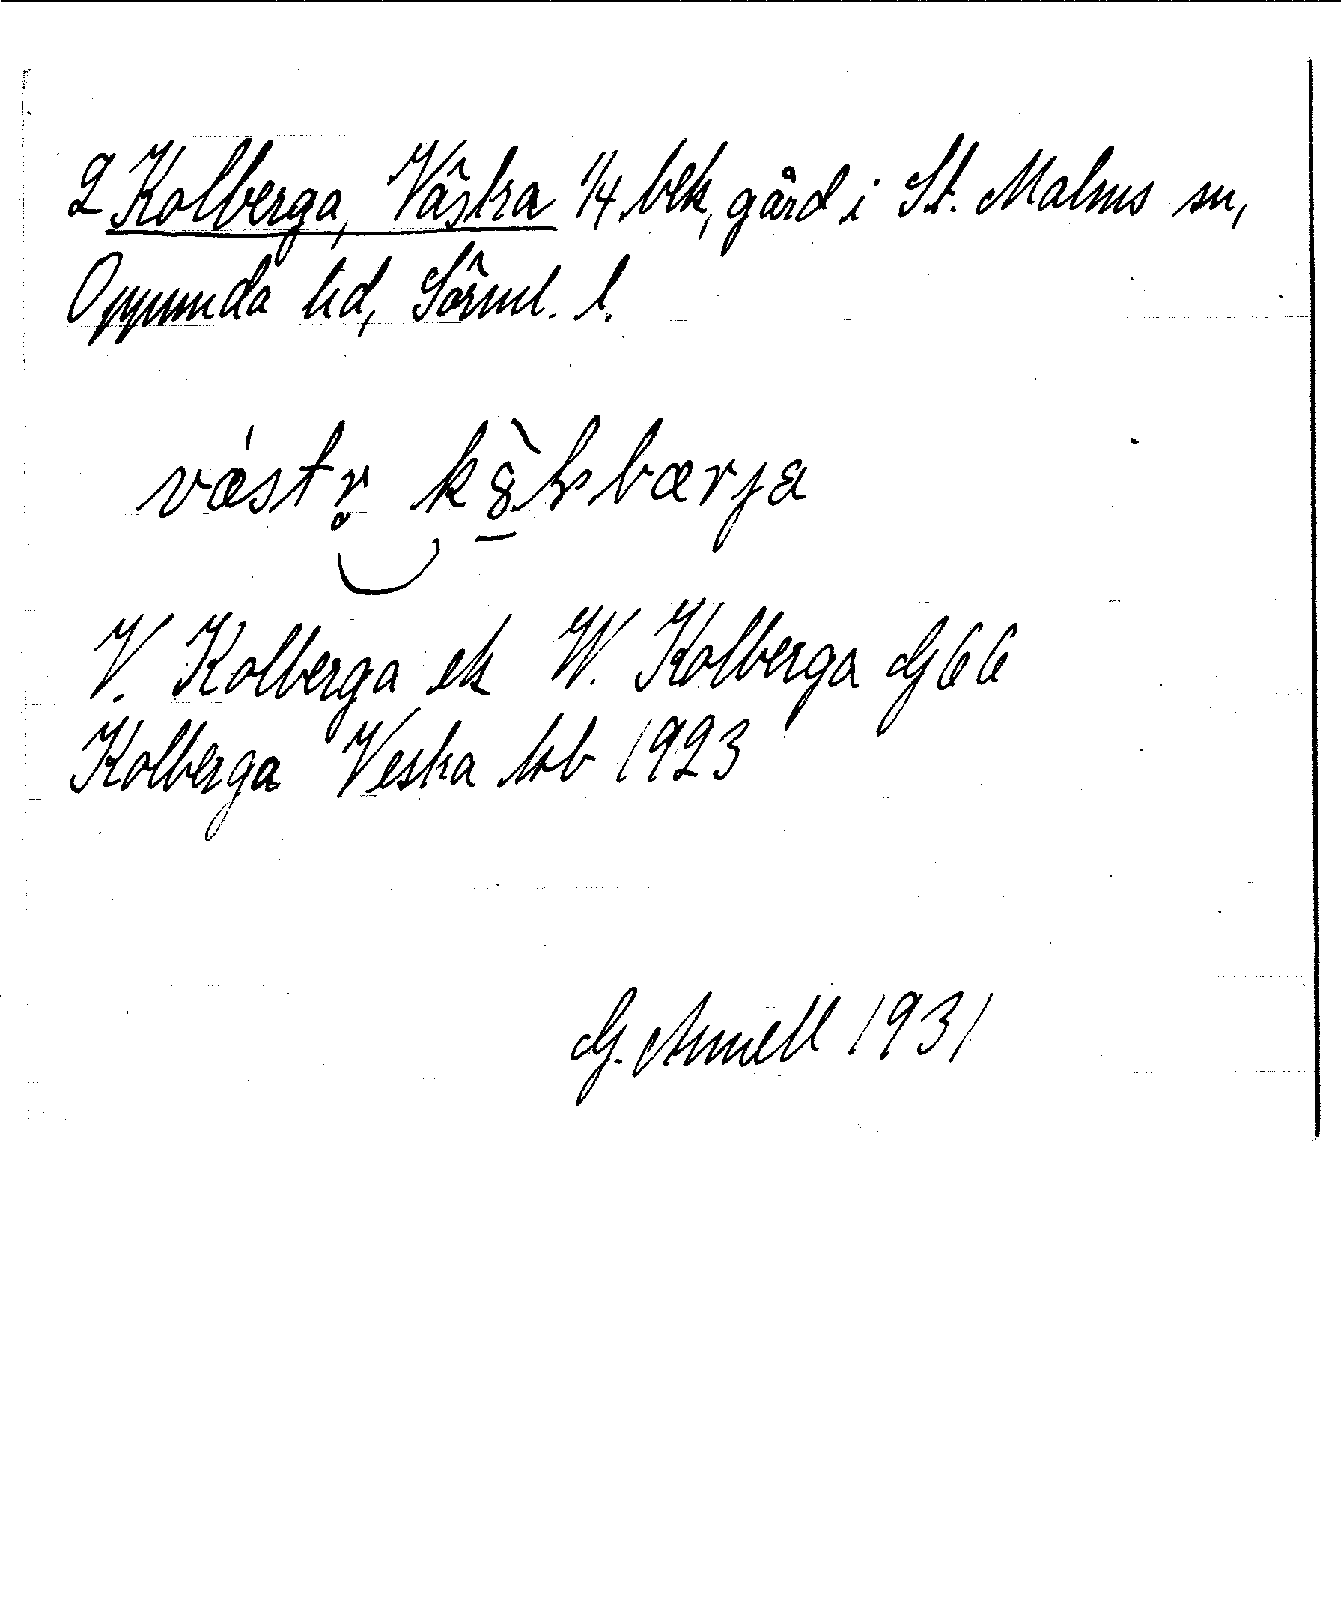 2 Kolberga, Västra 1/4 bek, gård i St. Malms sn,
Oppunda hd, Sörml. l.
V. Kolberga ek W. Kolberga G 66
Kolberga Vestra kb 1923
G. Annell 1931